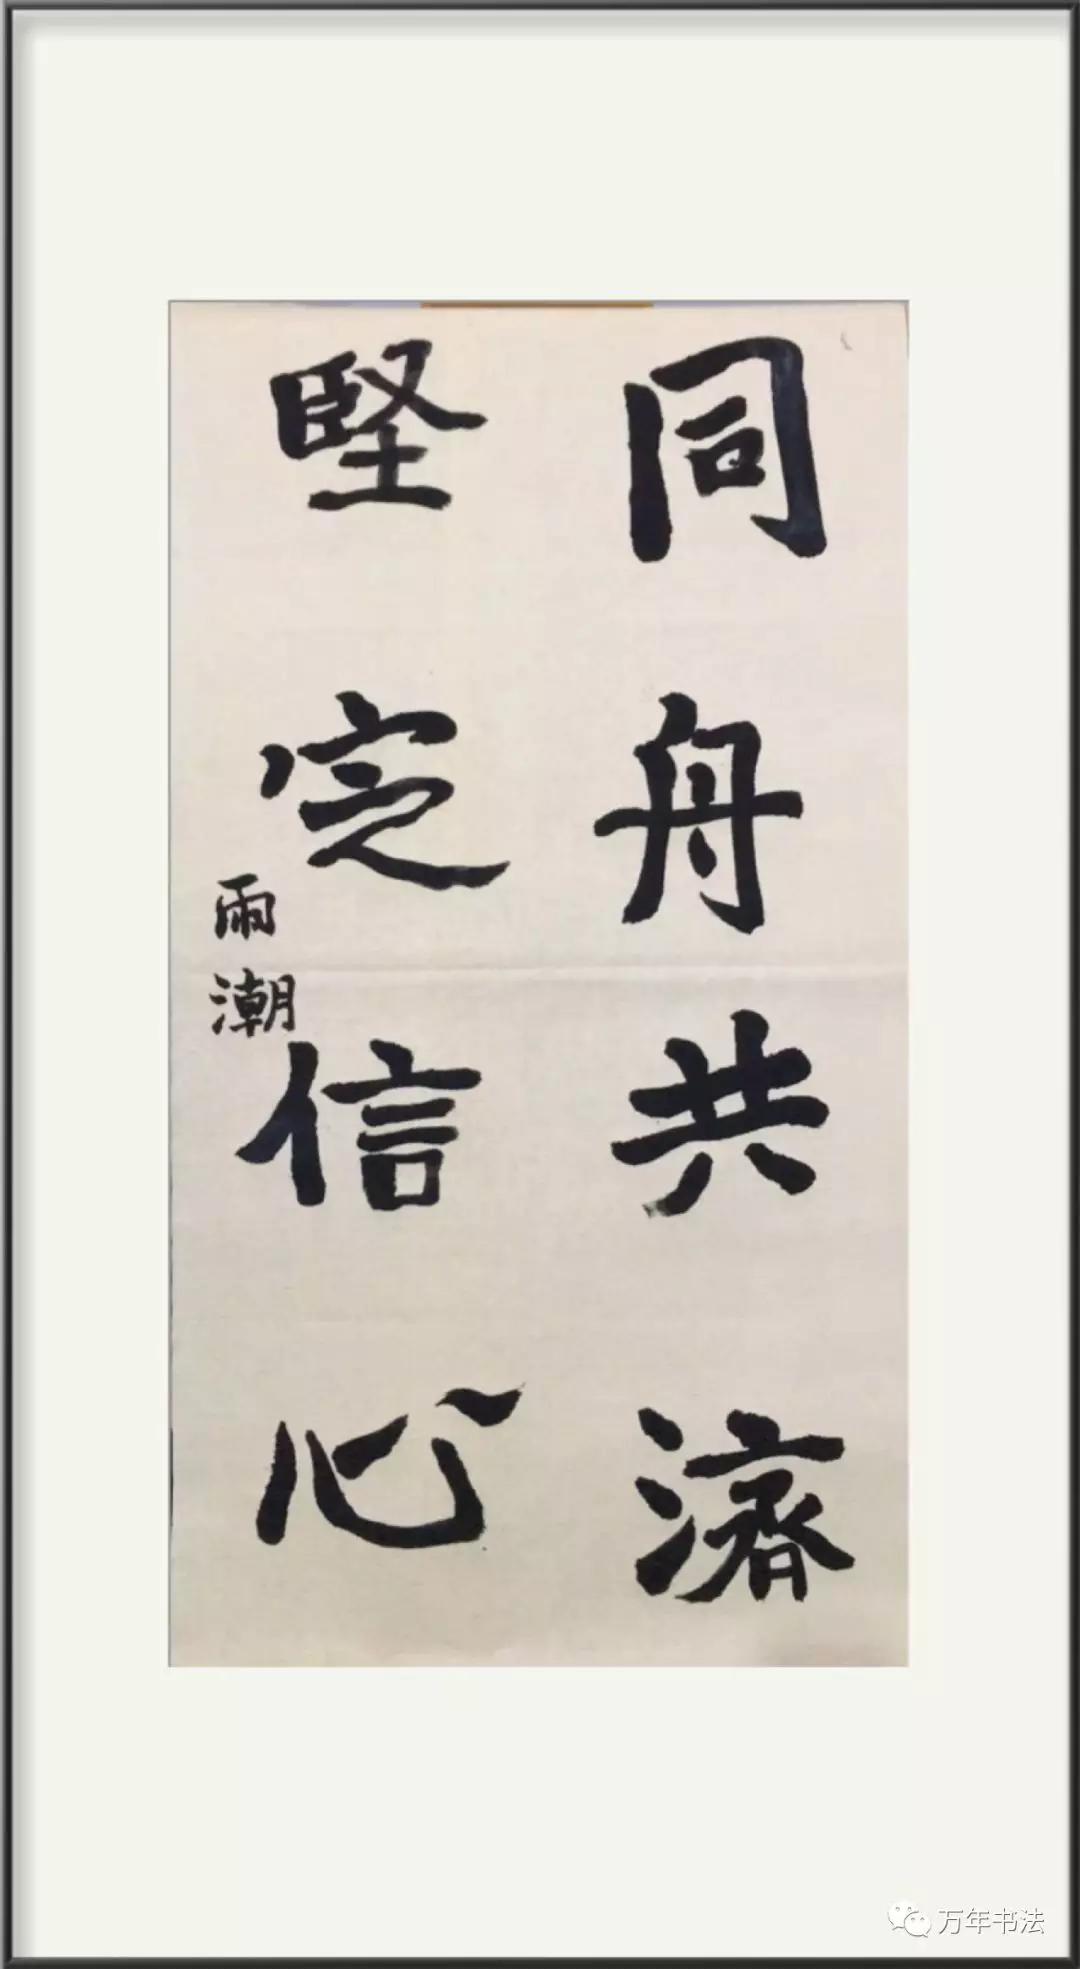 同舟共濟
堅定信心
雨潮
万年书法